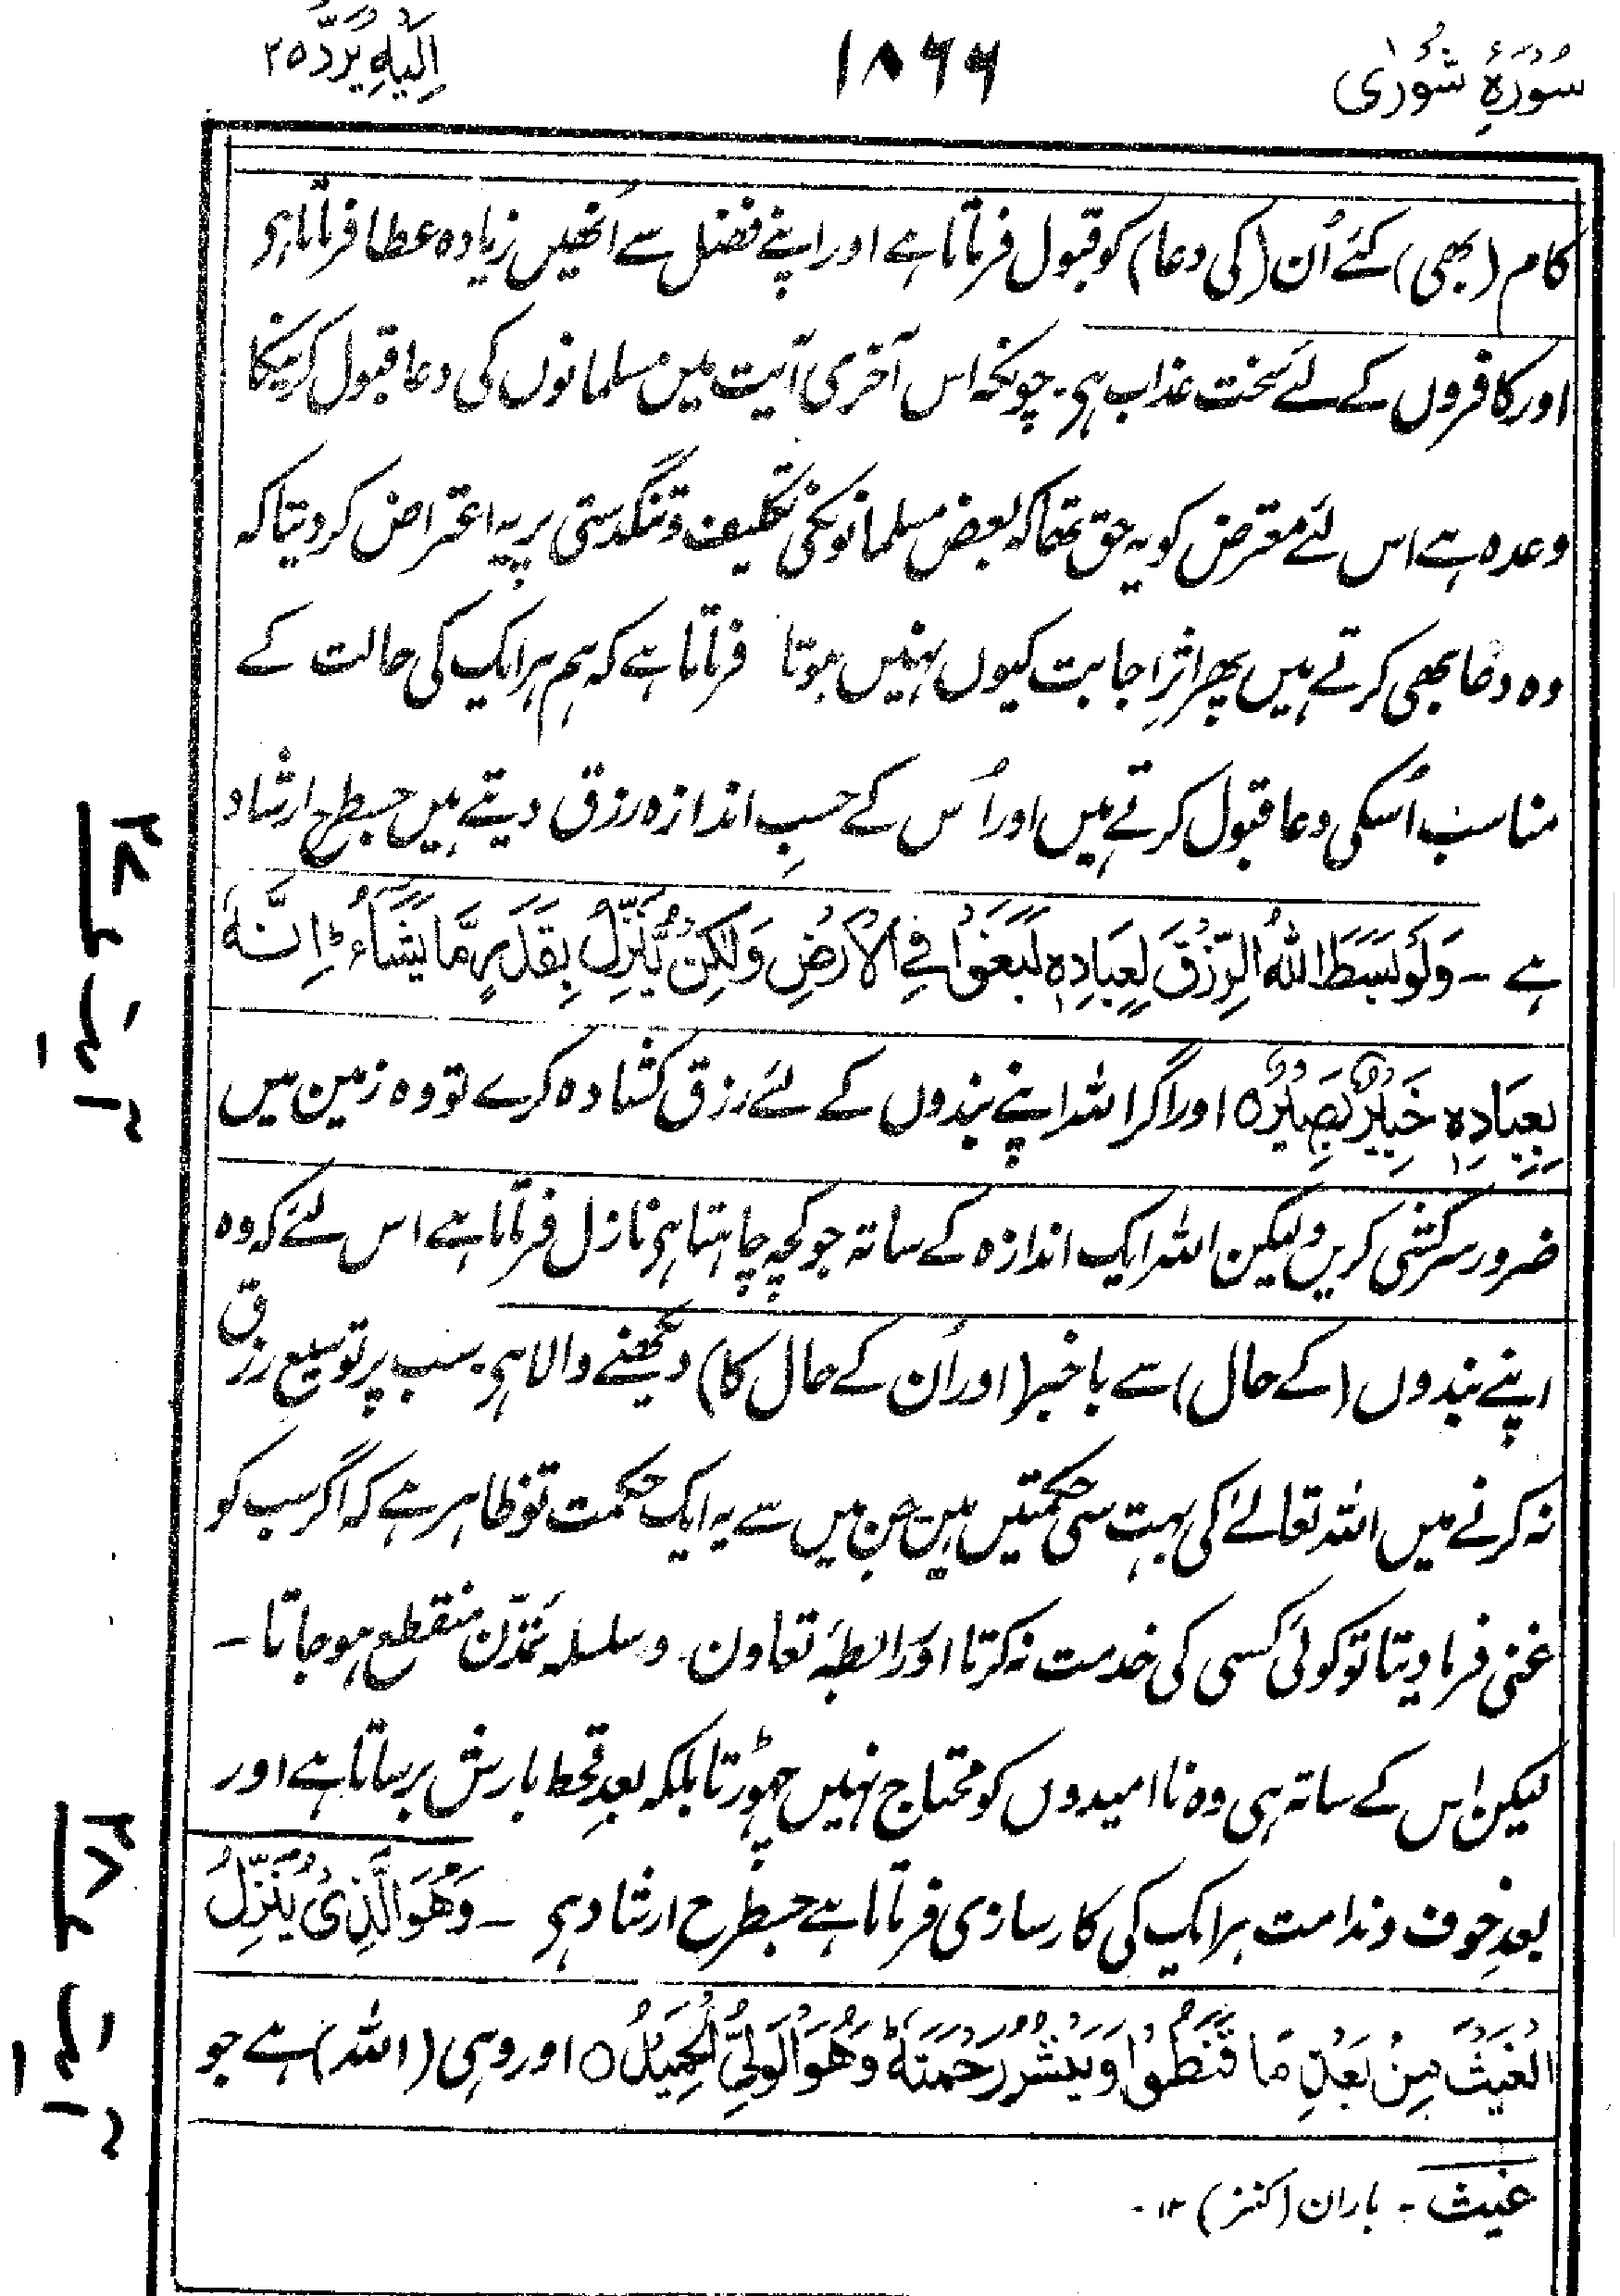 سُوْرَۂِ شُوْرٰی
۱۸۶۶
اِلَیْہِ یُرَدُّ ۲۵
کام (بھی) کئے اُن (کی دعا) کو قبول فرماتا ہے اور اپنے فضل سے اُنھیں زیادہ عطا فرماتا ہی
اور کافروں کے لئے سخت عذاب ہی۔ چونکہ اس آخری آیت میں مسلمانوں کی دعا قبول کرنیکا
وعدہ ہے اس لئے معترض کو یہ حق تھا کہ بعض مسلمانونکی تکلیف و تنگدستی پر یہ اعتراض کر دیتا کہ
وہ دعا بھی کرتے ہیں پھر اثرِ اجابت کیوں نہیں ہوتا فرماتا ہے کہ ہم ہر ایک کی حالت کے
مناسب اُسکی دعا قبول کرتے ہیں اور اُس کے حسبِ اندازہ رزق دیتے ہیں جسطرح ارشاد
ہے ۔ وَلَوْ بَسَطَ اللّٰہُ الرِّزْقَ لِعِبَادِہٖ لَبَغَوْا فِی الْاَرْضِ وَلٰکِنْ یُّنَزِّلُ بِقَدَرٍ مَّا یَشَآءُ ؕ اِنَّہٗ
بِعِبَادِہٖ خَبِیْرٌۢ بَصِیْرٌ ۝ اور اگر اللہ اپنے بندوں کے لئے رزق کشادہ کرے تو وہ زمین میں
ضرور سرکشی کریں ولیکن اللہ ایک اندازہ کے ساتہ جو کچہ چاہتا ہی نازل فرماتا ہے اس لئے کہ وہ
اپنے بندوں (کے حال) سے باخبر (اور اُن کے حال کا) دیکھنے والا ہی۔ سب پر توسیع رزق
نہ کرنے میں اللہ تعالےٰ کی بہت سی حکمتیں ہیں جن میں سے یہ ایک حکمت تو ظاہر ہے کہ اگر سب کو
غنی فرما دیتا تو کوئی کسی کی خدمت نہ کرتا اور رابطۂ تعاون و سلسلہ تمدّن منقطع ہو جاتا ۔
لیکن اس کے ساتہ ہی وہ نا امیدوں کو محتاج نہیں چھوڑتا بلکہ بعدِ قحط بارش برساتا ہے اور
بعدِ خوف و ندامت ہر ایک کی کارسازی فرماتا ہے جسطرح ارشاد ہی ۔ وَھُوَ الَّذِیْ یُنَزِّلُ
الْغَیْثَ مِنْۢ بَعْدِ مَا قَنَطُوْا وَیَنْشُرُ رَحْمَتَہٗ ؕ وَھُوَ الْوَلِیُّ الْحَمِیْدُ ۝ اور وہی (اللہ) ہے جو
غیث ۔ باران (کنز) ۱۲ ۔
آیت ۲۷
آیت ۲۸